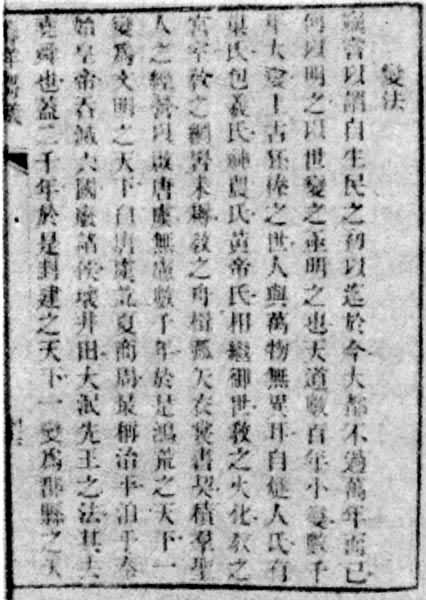 變法
竊嘗以謂自生民之初以迄於今大都不過萬年而已
何以明之以世變之亟明之也天道數百年小變數千
年大變上古狉榛之世人與萬物無異耳自燧人氏有
巢氏包羲氏神農氏黃帝氏相繼御世教之火化教之
宮室教之網罟耒耨教之舟楫弧矢衣裳書契積羣聖
人之經營以啟唐虞無慮數千年於是鴻荒之天下一
變為文明之天下自唐虞迄夏商周最稱治平洎乎秦
始皇帝吞滅六國廢諸侯壞井田大泯先王之法其去
堯舜也蓋二千年於是封建之天下一變為郡縣之天